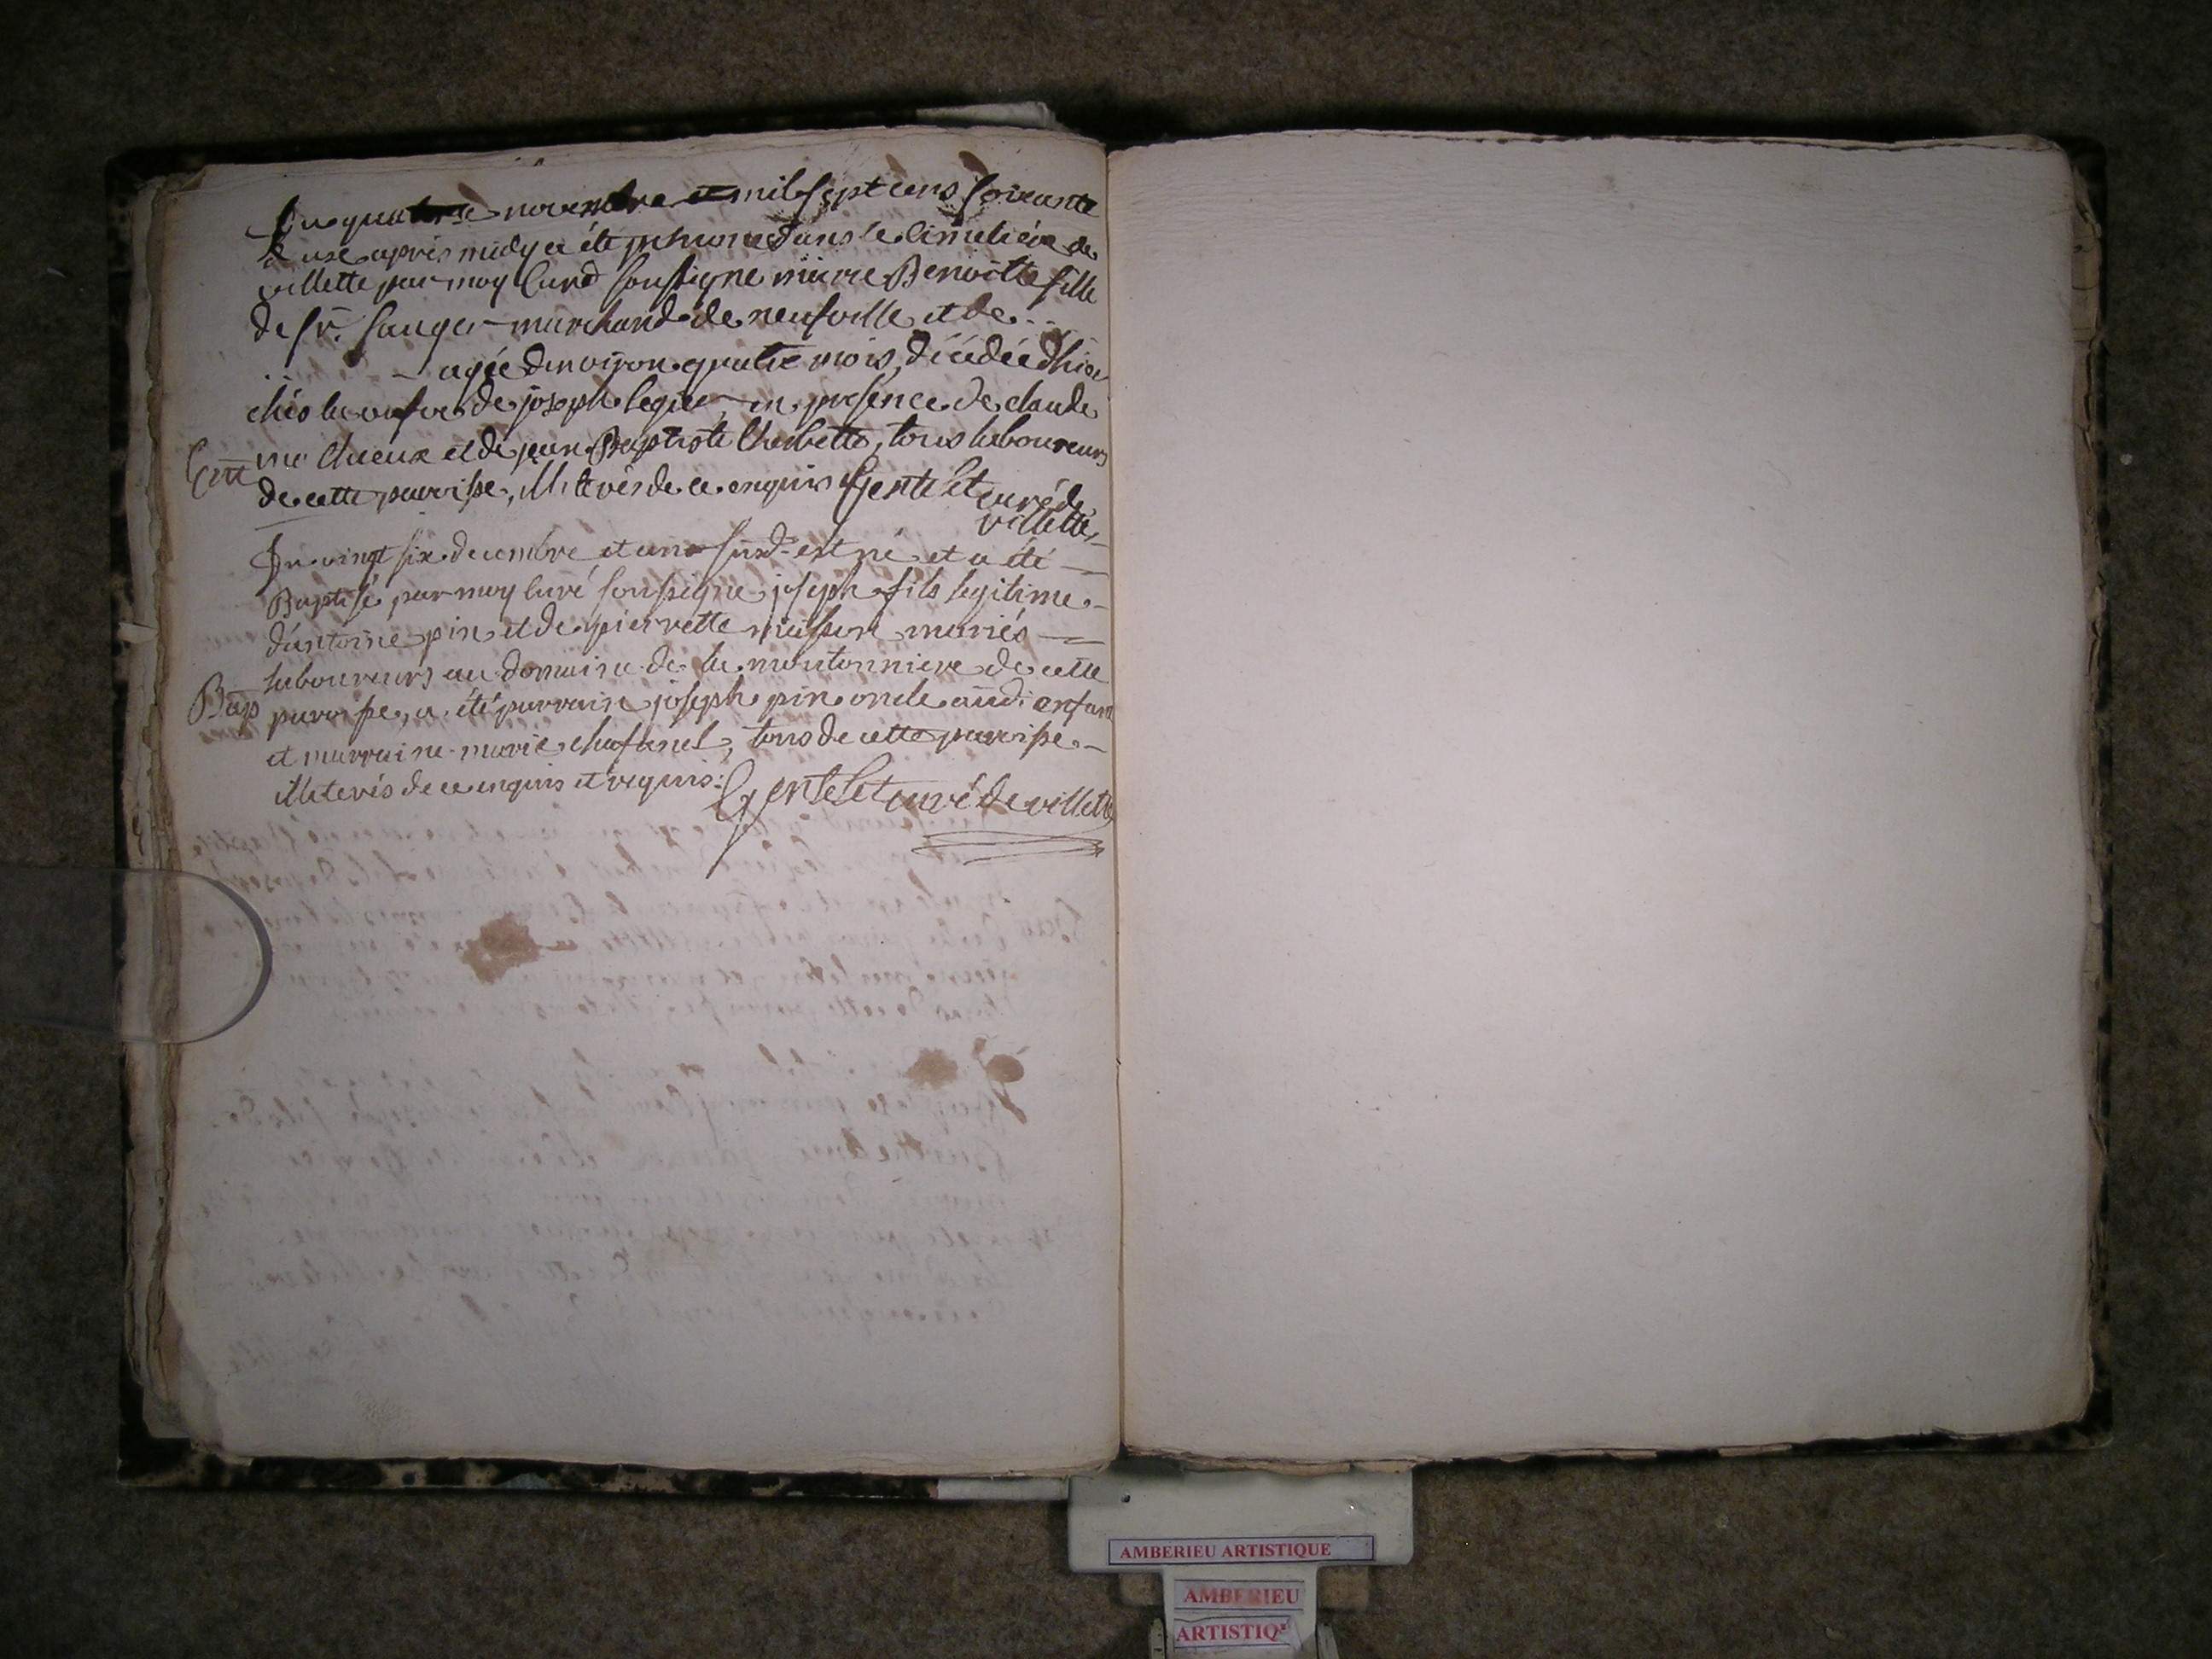 novembre mil sept cens soixante
apres midy a été inhumé dans le cimetière de
villette par moy Curé soussigné marie Benoitte fille
de Sr. sauger marchand de neufville et de ...
... – agée denviron quatre mois, décédée dhier
chés de joseph leger, en presence de claude
et de jean Baptiste Chevrette, tous laboureurs
Ent
de cette paroisse, illiterés de ce enquis Gentelet curé de
villette
Du vingt six decembre et an susd. est né et a été
Baptisé par moy curé soussigné joseph fils legitime
d'antoine pin et de pierrette mariés
laboureurs au domaine de la moutonniere de cette
Bap
paroisse, a été parrain joseph pin oncle aud. enfant
et marraine marie chafanel, tous de cette paroisse
illiterés de ce enquis et requis. Gentelet curé de villette
AMBERIEU ARTISTIQUE
AMBERIEU
ARTISTIQ